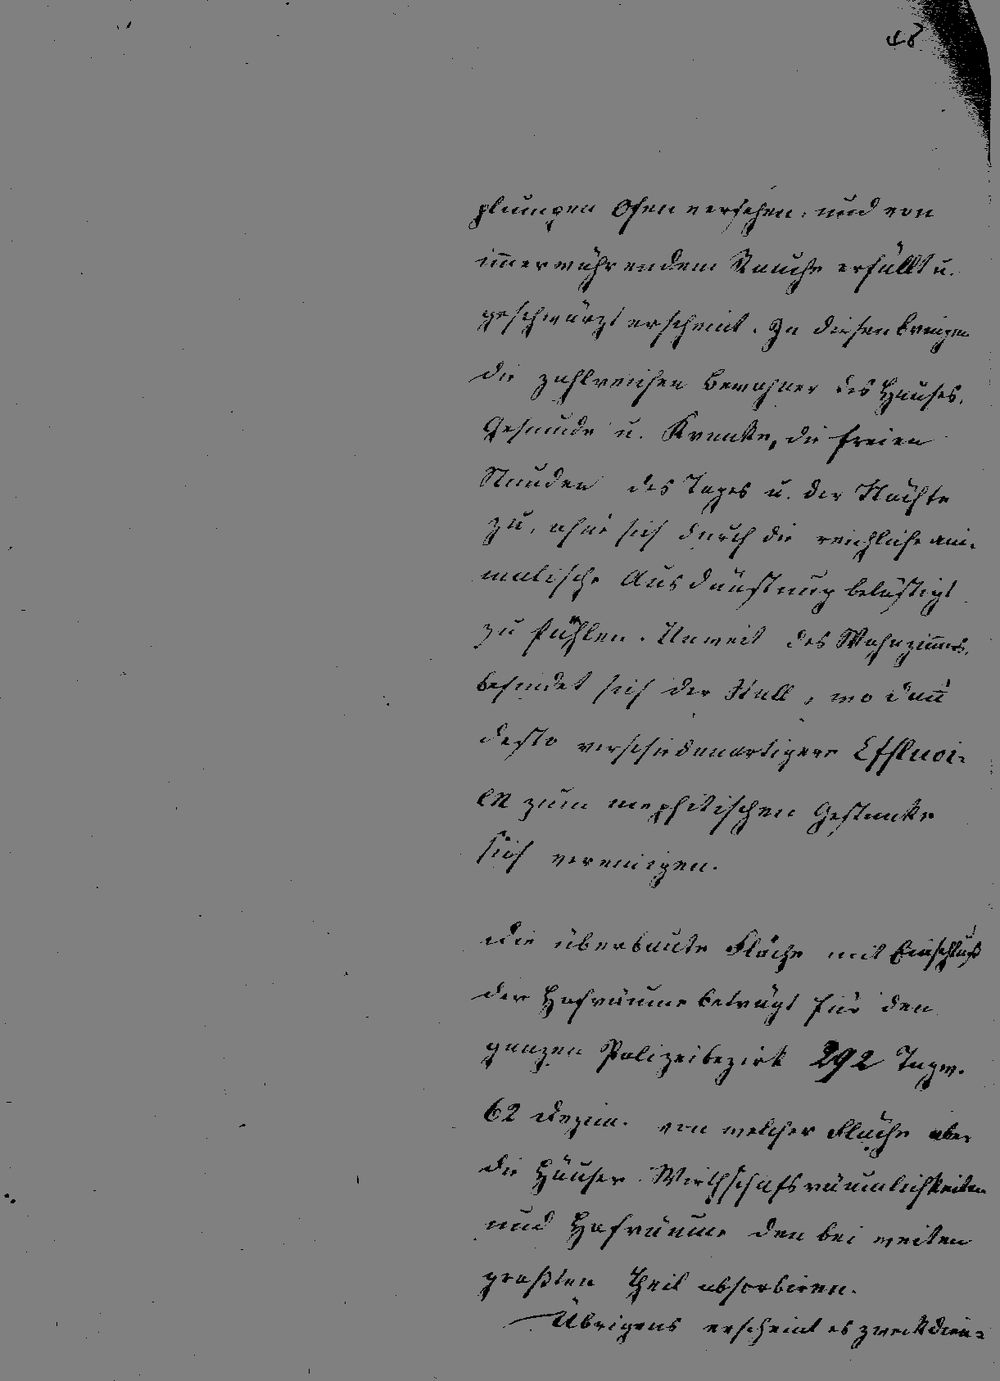 48
plumpen Ofen versehen, und von
immerwährendem Rauche erfüllt u.
geschwärzt erscheint. In diesen bringen
die zahlreichen Bewohner des Hauses,
Gesunde u. Kranke, die freien
Stunden des Tages u. der Nächte
zu, ohne sich durch die reichliche ani-
malische Ausdünstung belästigt
zu fühlen. Unweit des Wohnzimmers,
befindet sich der Stall, wo dann
desto verschiedenartigere Effluvi-
en zum mephitischen Gestanke
sich vereinigen.
Die überbaute Fläche mit Einschluß
der Hofräume beträgt für den
ganzen Polizeibezirk 292 Tagw.
62 Dezim. von welcher Fläche aber
die Häuser Wirthschaftsräumlichkeiten
und Hofräume den bei weiten
großten Theil absorbiren.
Übrigens erscheint es zweckdien-